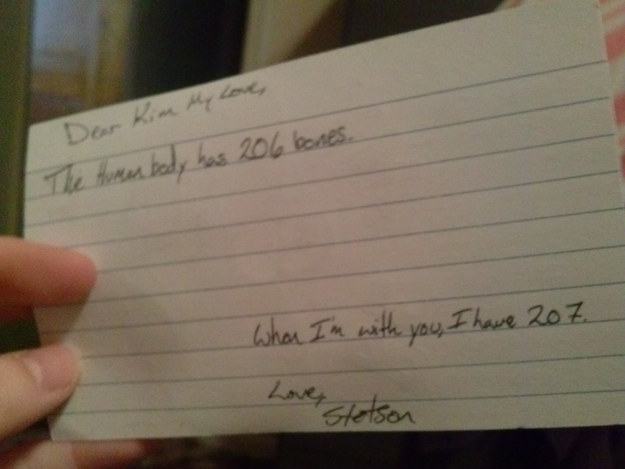 Dear Kim My Love,
The Human body has 206 bones.
When I'm with you, I have 207.
Love,
Stetson